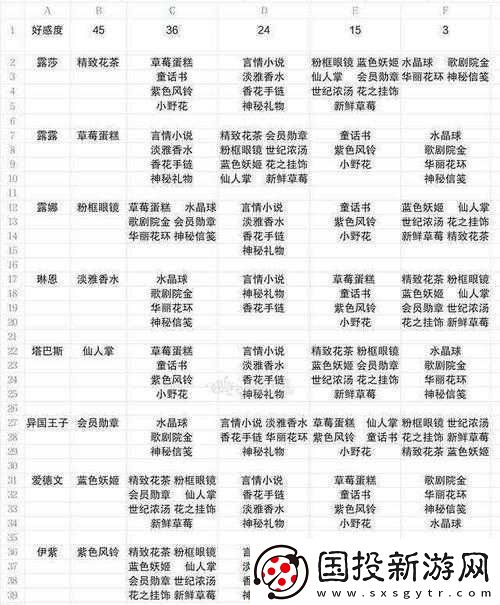 A B C D E F
1 好感度 45 36 24 15 3
2 露莎 精致花茶 草莓蛋糕 言情小说 粉框眼镜 蓝色妖姬 水晶球 歌剧院金
3 童话书 淡雅香水 仙人掌 会员勋章 华丽花环 神秘信笺
4 紫色风铃 香花手链 世纪浓汤 花之挂饰
5 小野花 神秘礼物 新鲜草莓
6
7 露露 草莓蛋糕 言情小说 精致花茶 会员勋章 童话书 水晶球
8 淡雅香水 粉框眼镜 世纪浓汤 紫色风铃 歌剧院金
9 香花手链 蓝色妖姬 花之挂饰 小野花 华丽花环
10 神秘礼物 仙人掌 新鲜草莓 神秘信笺
11
12 露娜 粉框眼镜 草莓蛋糕 水晶球 言情小说 童话书 蓝色妖姬 仙人掌
13 歌剧院金 会员勋章 淡雅香水 紫色风铃 世纪浓汤 花之挂饰
14 华丽花环 神秘信笺 香花手链 小野花 新鲜草莓 精致花茶
15 神秘礼物
16
17 琳恩 淡雅香水 水晶球 言情小说 草莓蛋糕 精致花茶 粉框眼镜
18 歌剧院金 神秘礼物 童话书 蓝色妖姬 仙人掌
19 华丽花环 香花手链 紫色风铃 会员勋章 世纪浓汤
20 神秘信笺 小野花 花之挂饰 新鲜草莓
21
22 塔巴斯 仙人掌 草莓蛋糕 言情小说 精致花茶 粉框眼镜 水晶球
23 童话书 淡雅香水 蓝色妖姬 会员勋章 歌剧院金
24 紫色风铃 香花手链 世纪浓汤 花之挂饰 华丽花环
25 小野花 神秘礼物 新鲜草莓 神秘信笺
26
27 异国王子 会员勋章 水晶球 言情小说 淡雅香水 草莓蛋糕 仙人掌 粉框眼镜 世纪浓汤
28 歌剧院金 香花手链 华丽花环 紫色风铃 童话书 花之挂饰 新鲜草莓
29 神秘信笺 神秘礼物 小野花 精致花茶 蓝色妖姬
30
31 爱德文 蓝色妖姬 精致花茶 粉框眼镜 言情小说 草莓蛋糕 歌剧院金
32 会员勋章 仙人掌 香花手链 童话书 华丽花环
33 世纪浓汤 花之挂饰 淡雅香水 紫色风铃 神秘信笺
34 新鲜草莓 神秘礼物 小野花 水晶球
35
36 伊紫 紫色风铃 精致花茶 粉框眼镜
37 蓝色妖姬 仙人掌
38 会员勋章 世纪浓汤
39 花之挂饰 新鲜草莓
国投新游网
www.sxsgytr.com